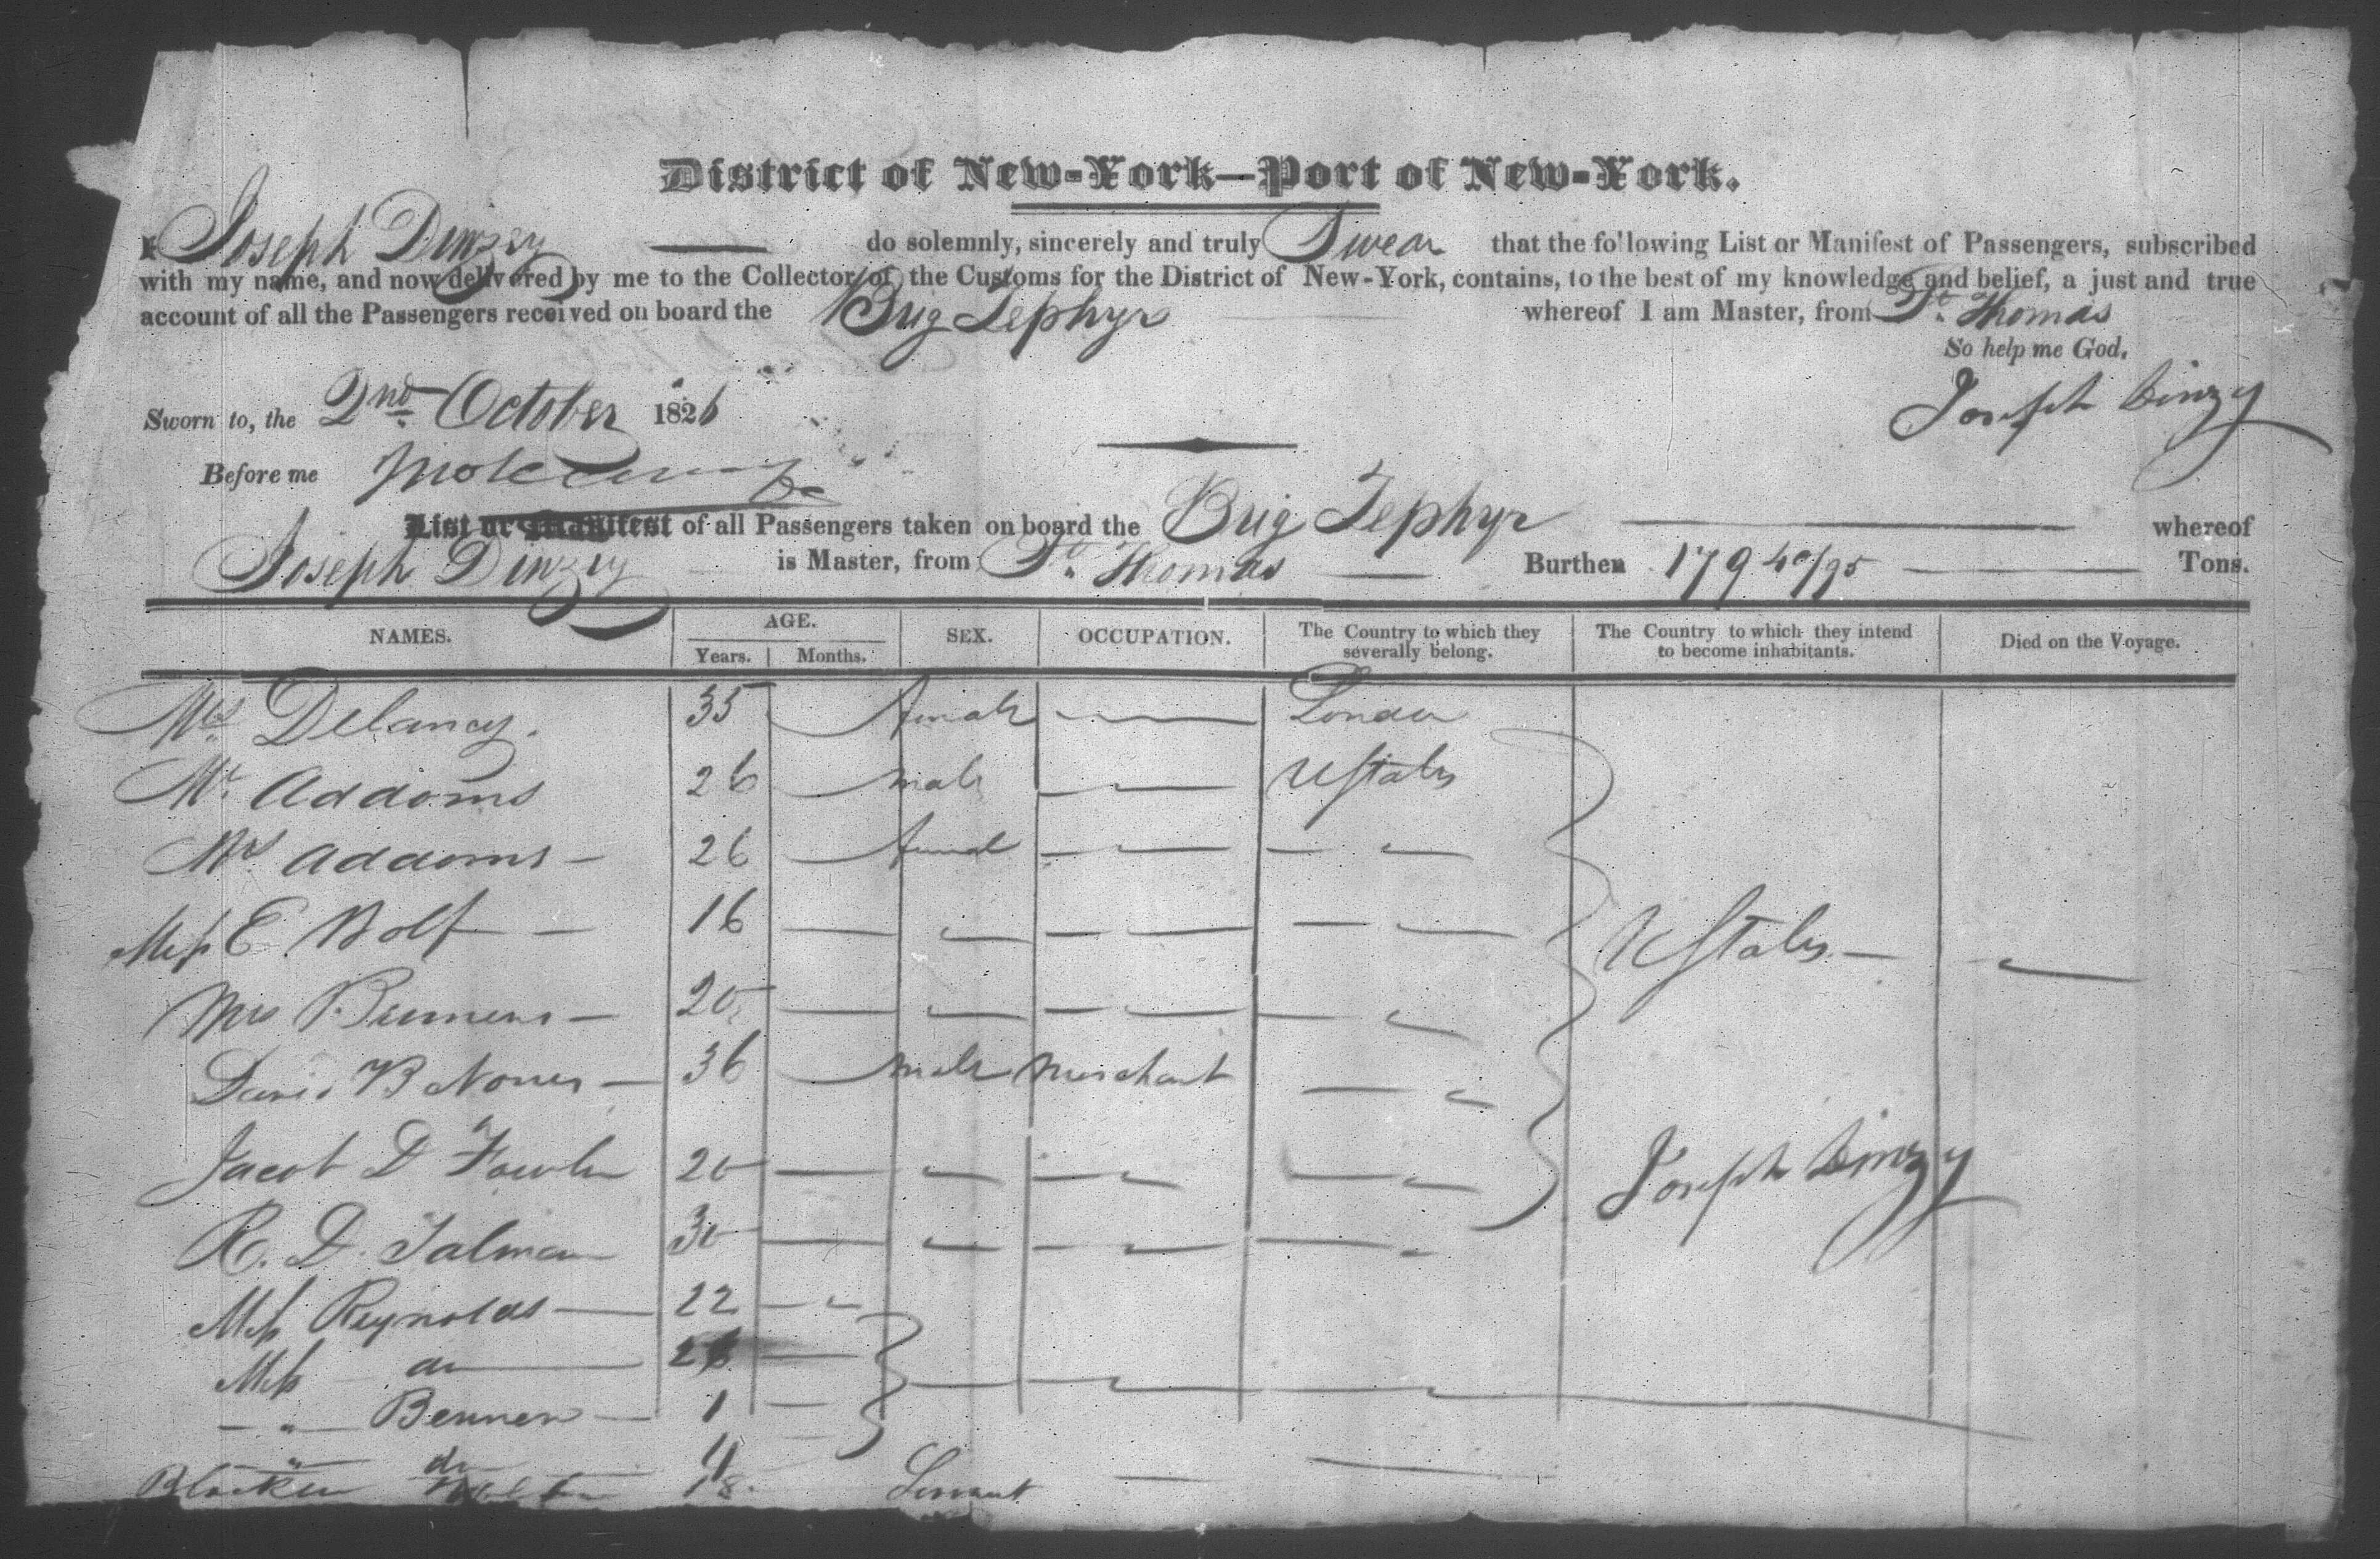 District of New-York—Port of New-York.
I Joseph Dinzey do solemnly, sincerely and truly Swear that the following List or Manifest of Passengers, subscribed
with my name, and now delivered by me to the Collector of the Customs for the District of New-York, contains, to the best of my knowledge and belief, a just and true
account of all the Passengers received on board the Brig Zephyr whereof I am Master, from St. Thomas
So help me God,
Joseph Dinzy
Sworn to, the 2nd October 1826
Before me
List or Manifest of all Passengers taken on board the Brig Zephyr whereof
Joseph Dinzey is Master, from St. Thomas Burthen 179 40/95 Tons.
NAMES. AGE. SEX. OCCUPATION. The Country to which they severally belong. The Country to which they intend to become inhabitants. Died on the Voyage.
Years. Months.
Mrs Delancy. 35 female London
Mr Addoms 26 male UStates
Mrs Addoms 26 femal
Miss E 16 UStates
Mrs 20
David B 36 male Merchant
Jacob D Fowler 20 Joseph Dinzy
R. D. Talman 30
Miss Reynolds 22
Miss do
" 1
" do 4
18 Servant